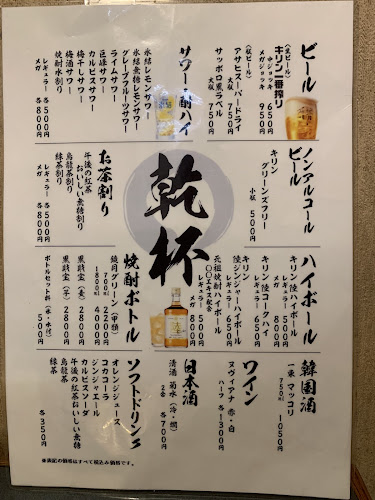 ビール
〈生ビール〉
キリン一番搾り
中ジョッキ 650円
メガジョッキ 950円
〈瓶ビール〉
アサヒスーパードライ
大瓶 750円
サッポロ黒ラベル
大瓶 750円
サワー・酎ハイ
氷結レモンサワー
氷結無糖レモンサワー
グレープフルーツサワー
ライムサワー
巨峰サワー
カルピスサワー
梅干しサワー
梅酒サワー
焼酎水割り
レギュラー 各500円
メガ 各800円
ノンアルコール
ビール
キリン
グリーンズフリー
小瓶 500円
乾杯
お茶割り
午後の紅茶
おいしい無糖割り
烏龍茶割り
緑茶割り
レギュラー 各500円
メガ 各800円
ハイボール
キリン 陸ハイボール
レギュラー 500円
メガ 800円
キリン 陸コークハイ
レギュラー 650円
キリン
陸ジンジャーハイボール
レギュラー 650円
元祖焼酎ハイボール
レギュラー 500円
焼酎ボトル
鏡月グリーン(甲類)
700ml 2000円
1800ml
黒霧島(麦) 2800円
黒霧島(芋) 2800円
ボトルセット料(氷・水付)
500円
韓国酒
一東 マッコリ
750ml 1050円
ワイン
ヌヴィアナ 赤・白
ハーフ 各1300円
日本酒
清酒 菊水(冷・燗)
2合 各700円
ソフトドリンク
オレンジジュース
コカコーラ
ジンジャエール
カルピスソーダ
午後の紅茶おいしい無糖
烏龍茶
緑茶
各350円
※表記の価格はすべて税込み価格です。